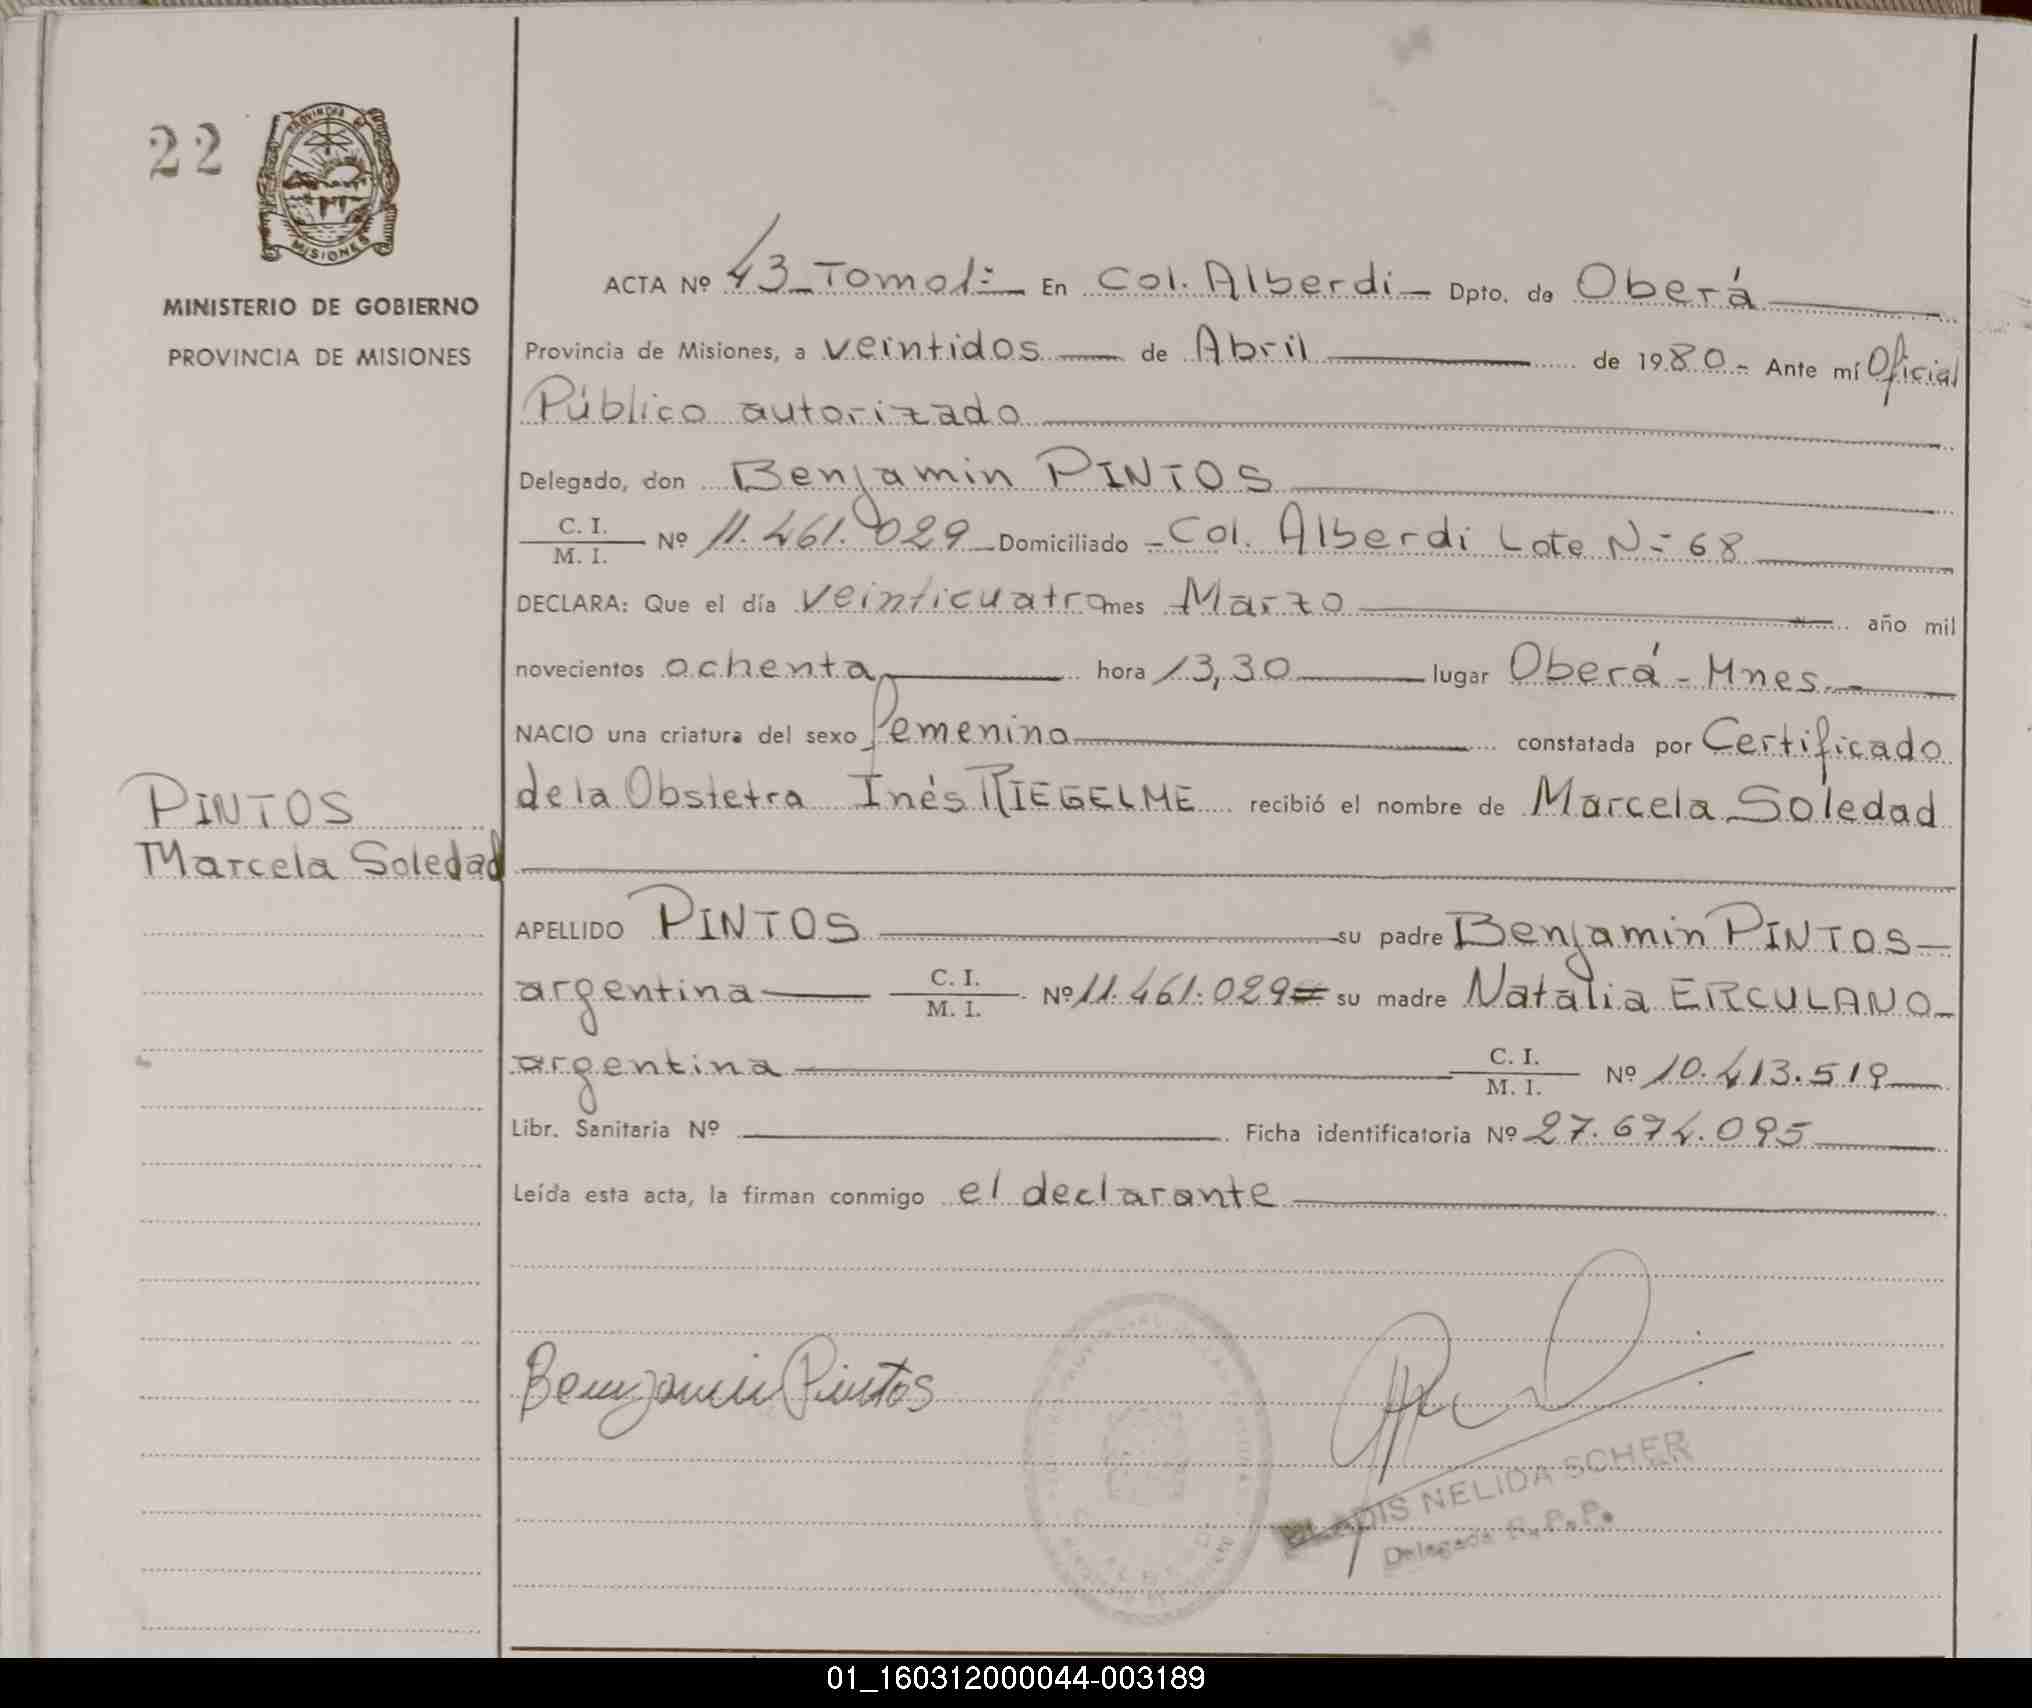 22
PROVINCIA DE
MISIONES
MINISTERIO DE GOBIERNO
PROVINCIA DE MISIONES
ACTA Nº 43 Tomo 1º En Col. Alberdi Dpto. de Oberá
Provincia de Misiones, a veintidos de Abril de 1980.- Ante mí Oficial
Público autorizado
Delegado, don Benjamin PINTOS
C. I.
M. I. Nº 11.461.029 Domiciliado Col. Alberdi Lote Nº 68
DECLARA: Que el día veinticuatro mes Marzo año mil
novecientos ochenta hora 13,30 lugar Oberá - Mnes.
NACIO una criatura del sexo femenino constatada por Certificado
de la Obstetra Inés RIEGELME recibió el nombre de Marcela Soledad
PINTOS
Marcela Soledad
APELLIDO PINTOS su padre Benjamin PINTOS
argentina C. I. M. I. Nº 11.461.029= su madre Natalia ERCULANO
argentina C. I. M. I. Nº 10.413.519
Libr. Sanitaria Nº Ficha identificatoria Nº 27.674.095
Leída esta acta, la firman conmigo el declarante
Benjamin Pintos
GLADIS NELIDA SCHER
Delegada R.P.P.
01_160312000044-003189